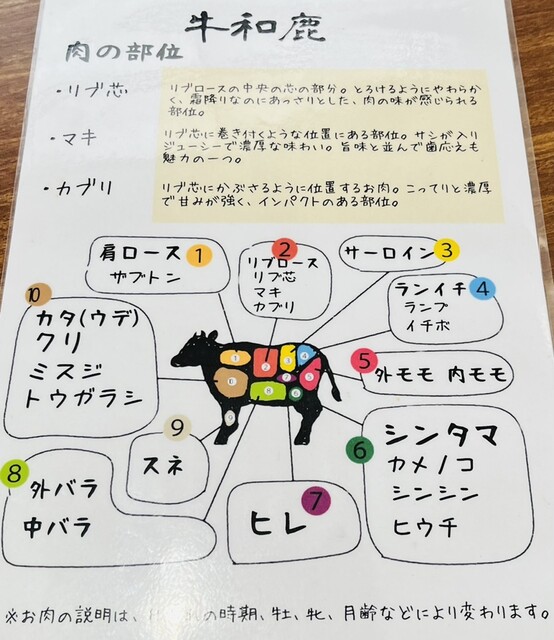 牛和鹿
肉の部位
・リブ芯
リブロースの中央の芯の部分。とろけるようにやわらか
く、霜降りなのにあっさりとした、肉の味が感じられる
部位。
・マキ
リブ芯に巻き付くような位置にある部位。サシが入り
ジューシーで濃厚な味わい。旨味と並んで歯応えも
魅力の一つ。
・カブリ
リブ芯にかぶさるように位置するお肉。こってりと濃厚
で甘みが強く、インパクトのある部位。
肩ロース 1
ザブトン
2
リブロース
リブ芯
マキ
カブリ
サーロイン 3
ランイチ 4
ランプ
イチボ
10
カタ(ウデ)
クリ
ミスジ
トウガラシ
5
外モモ 肉モモ
6
シンタマ
カメノコ
シンシン
ヒウチ
9
スネ
8
外バラ
中バラ
7
ヒレ
1
2
3
4
5
6
7
8
9
10
※お肉の説明は、の時期、牡、牝、月齢などにより変わります。